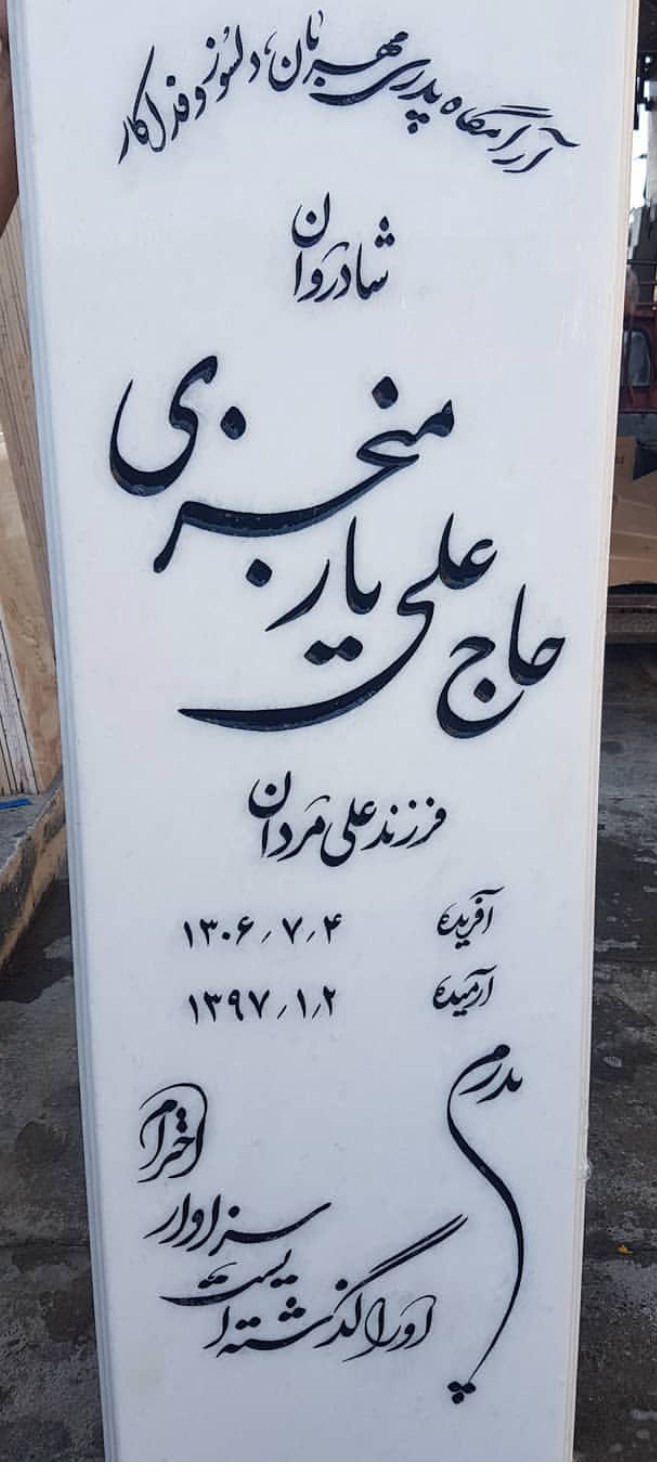 آرامگاه پدری مهربان، دلسوز و فداکار
شادروان
حاج علی یار منجزی
فرزند علی مردان
آفریده ۱۳۰۶/۷/۴
آرمیده ۱۳۹۷/۱/۲
پدرم
احترام
سزاوار
اوراگذشته